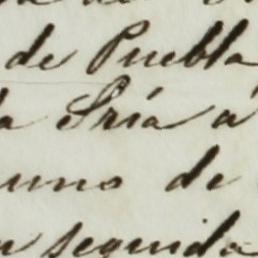 de Puebla
la Sría á
uno de
seguida